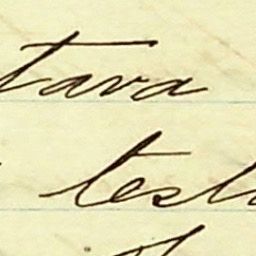 tava
test